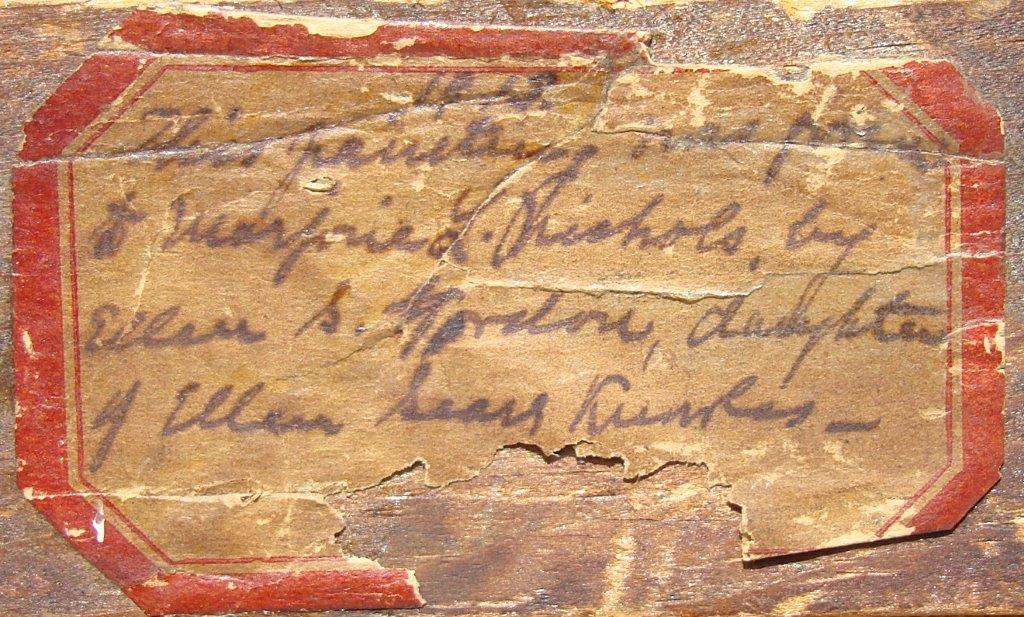 This painting was
to Marjorie L. Nichols, by
Ellen S. Gordon, daughter
of Ellen Sears